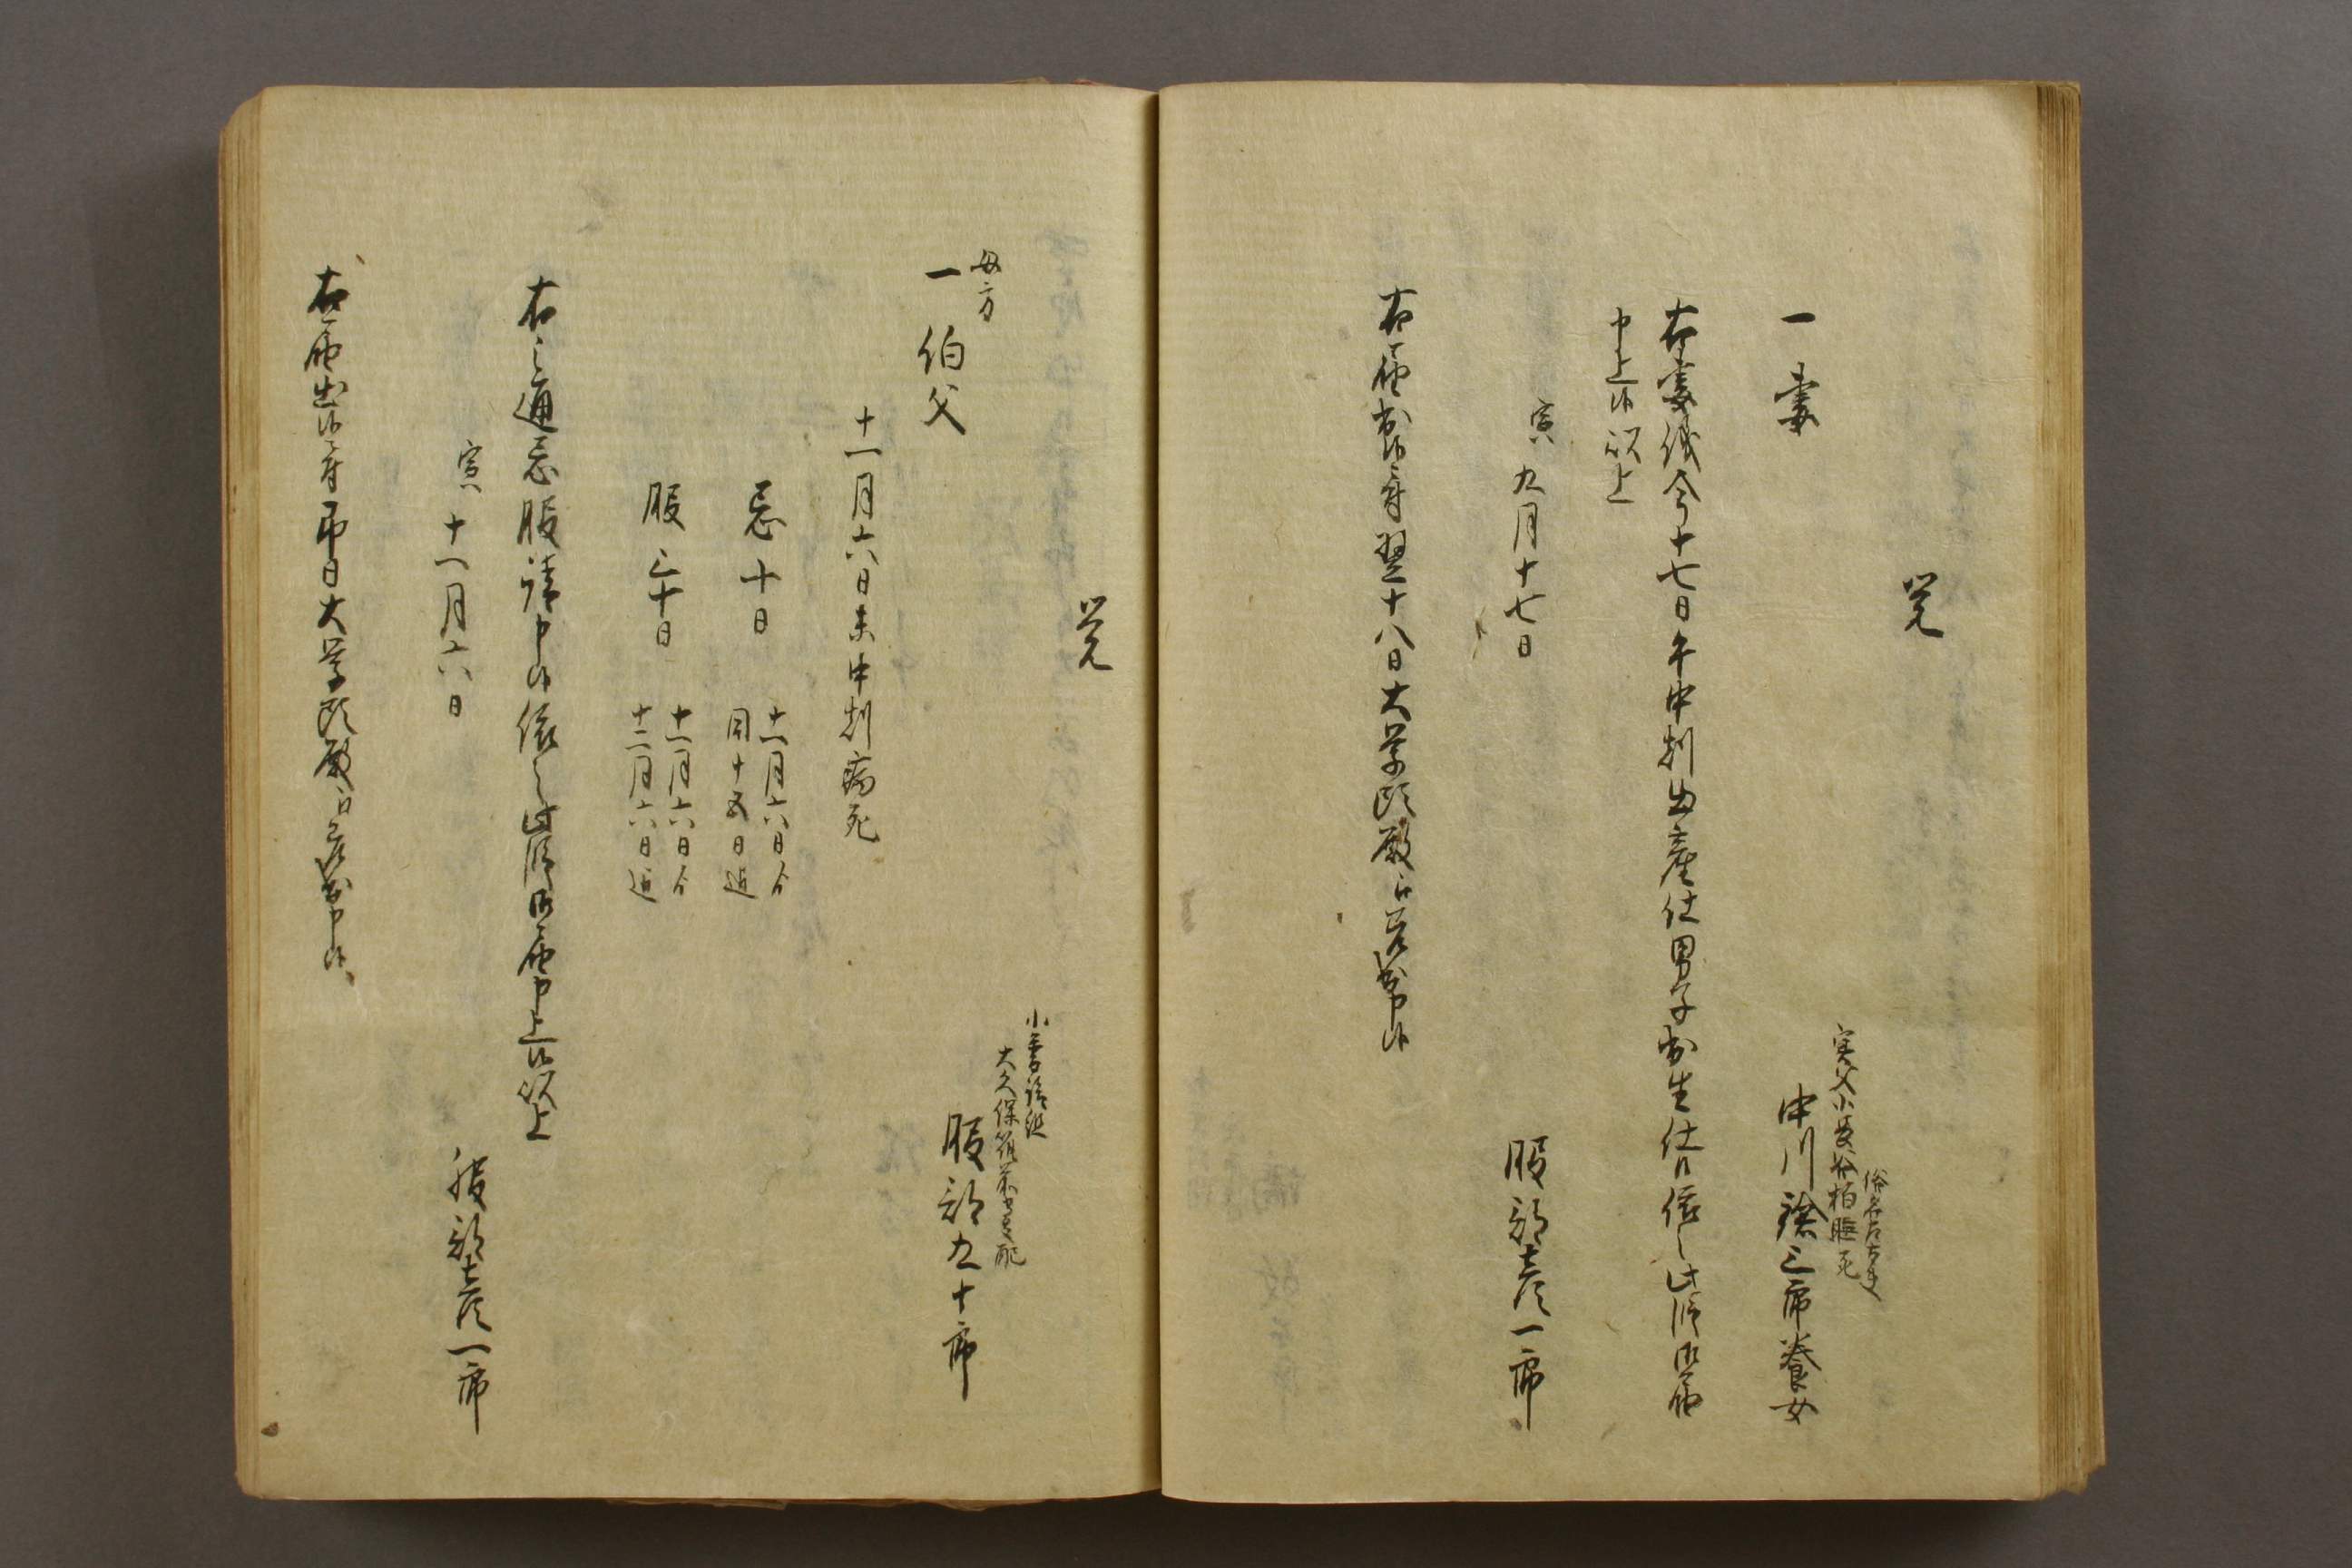 覚
実父小長谷
中川鎗三郎養女
一妻
右妻儀今十七日午中刻出産仕男子出生仕候依之此段御届
申上候以上
寅九月十七日
服部彦一郎
右届書出候ニ付翌十八日大学頭殿江差出申候
覚
小普請組
大久保筑前守支配
服部九十郎
母方
一伯父
十一月六日未中刻病死
忌十日
十一月六日ゟ
同十五日迄
服三十日
十一月六日ゟ
十二月六日迄
右之通忌服請申候依之此段御届申上候以上
寅十一月六日
服部彦一郎
右届出候ニ付即日大学頭殿江差出申候